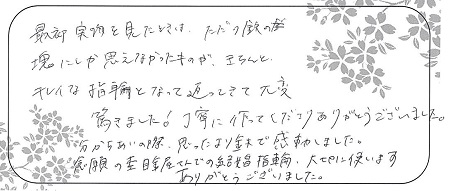 最初 実物を見たときは、ただの鉄の
塊にしか思えなかったものが、きちんと
キレイな指輪となって返ってきて大変
驚きました!丁寧に作ってくださりありがとうございました。
分からあいの際、思ったより針木で感動しました。
念願の杢目金屋さんでの結婚指輪、大切に使います
ありがとうございました。